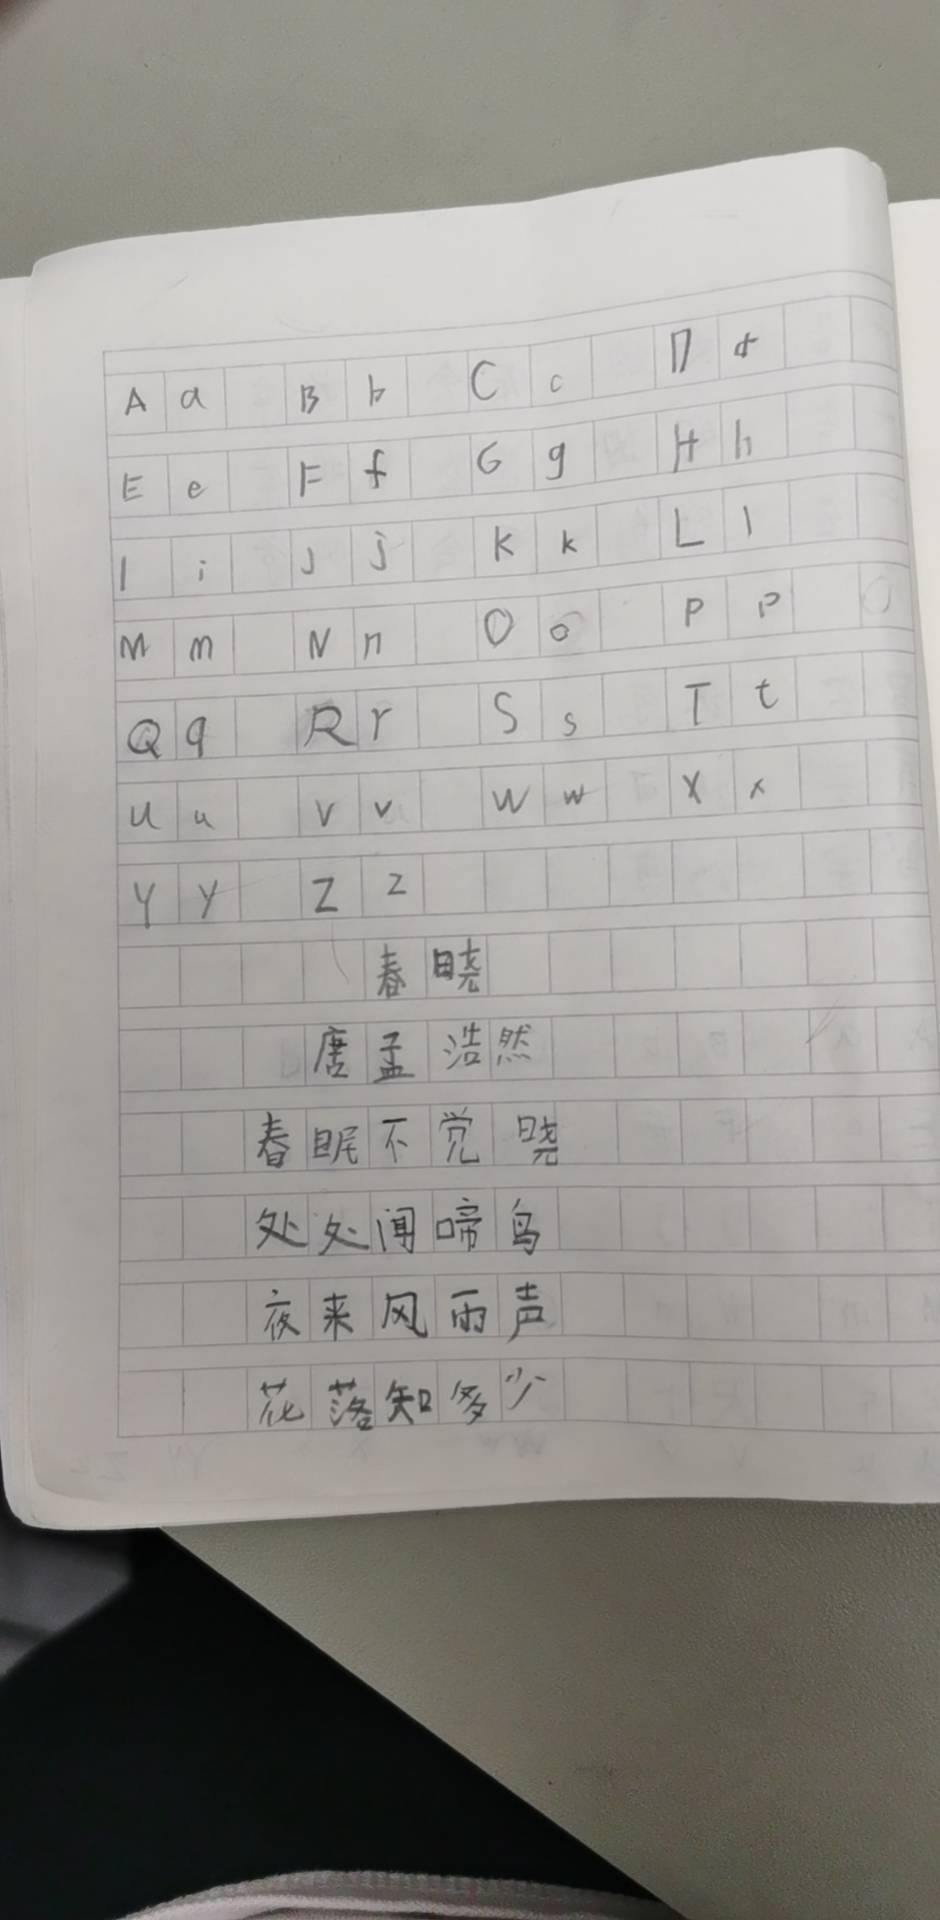 A a B b C c D d
E e F f G g H h
I i J j K k L l
M m N n O o P p
Q q R r S s T t
U u V v W w X x
Y y Z z
春晓
唐孟浩然
春眠不觉晓
处处闻啼鸟
夜来风雨声
花落知多少